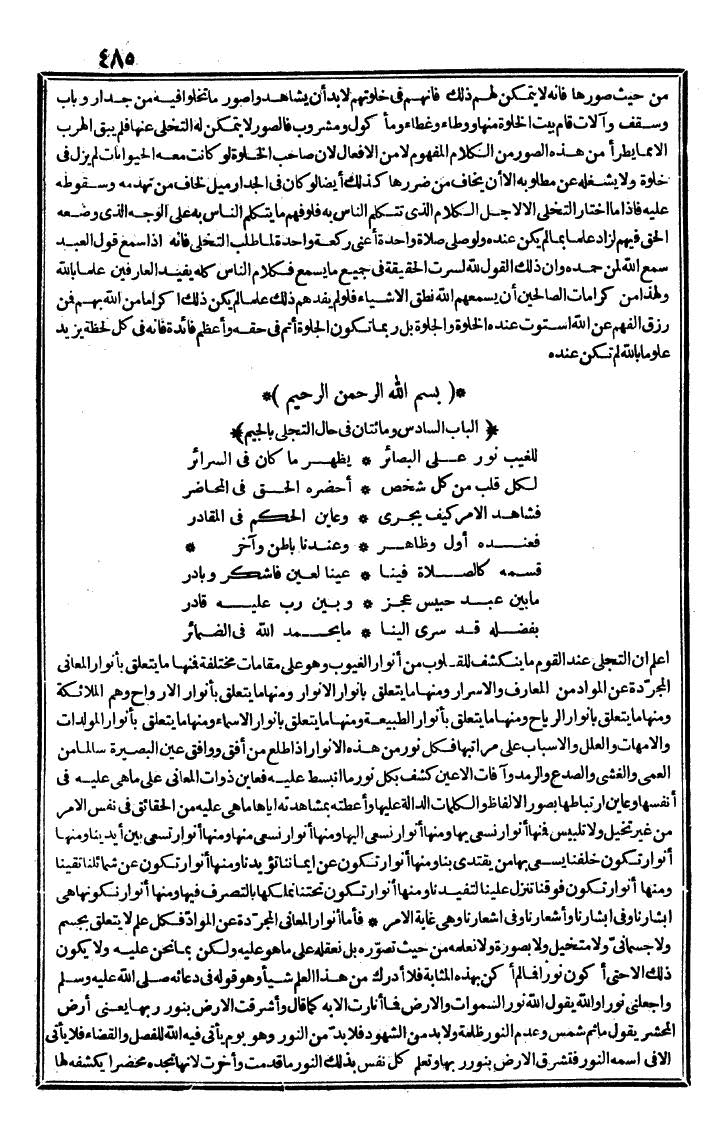 ٤٨٥
من حيث صورها فانه لا يتمكن لهم ذلك فانهم فى خلوتهم لا بد أن يشاهدوا صور ما تخلوا فيه من جدار وباب
وسقف وآلات قام بيت الخلوة منها ووطاء وغطاء ومأكول ومشروب فالصور لا يتمكن له التخلى عنها فلم يبق الهرب
الا مما يطرأ من هذه الصور من الكلام المفهوم لا من الافعال لان صاحب الخلوة لو كانت معه الحيوانات لم يزل فى
خلوة ولا يشغله عن مطلوبه الا أن يخاف من ضررها كذلك أيضا لو كان فى الجدار ميل لخاف من تهدمه وسقوطه
عليه فاذا ما اختار التخلى الا لاجل الكلام الذى تتكلم الناس به فلو فهم ما يتكلم الناس به على الوجه الذى وضعه
الحق فيهم لزاد علما بما لم يكن عنده ولو صلى صلاة واحدة أعنى ركعة واحدة لما طلب التخلى فانه اذا سمع قول العبد
سمع الله لمن حمده وان ذلك القول لله لسرت الحقيقة فى جميع ما يسمع فكلام الناس كله يفيد العارفين علما بالله
ولهذا من كرامات الصالحين أن يسمعهم الله نطق الاشياء فلو لم يفدهم ذلك علما لم يكن ذلك اكراما من الله بهم فمن
رزق الفهم عن الله استوت عنده الخلوة والجلوة بل ربما تكون الجلوة أتم فى حقه وأعظم فائدة فانه فى كل لحظة يزيد
علوما بالله لم تكن عنده
*( بسم الله الرحمن الرحيم )*
﴿ الباب السادس ومائتان فى حال التجلى بالجيم ﴾
للغيب نور على البصائر * يظهر ما كان فى السرائر
لكل قلب من كل شخص * أحضره الحق فى المحاضر
فشاهد الامر كيف يجرى * وعاين الحكم فى المقادر
فعنده أول وظاهر * وعندنا باطن وآخر *
قسمه كالصلاة فينا * عينا لعين فاشكر وبادر
ما بين عبد حبيس عجز * وبين رب عليه قادر
بفضله قد سرى الينا * ما يحمد الله فى الضمائر
اعلم ان التجلى عند القوم ما ينكشف للقلوب من أنوار الغيوب وهو على مقامات مختلفة فمنها ما يتعلق بأنوار المعانى
المجردة عن المواد من المعارف والاسرار ومنها ما يتعلق بانوار الانوار ومنها ما يتعلق بأنوار الارواح وهم الملائكة
ومنها ما يتعلق بانوار الرياح ومنها ما يتعلق بأنوار الطبيعة ومنها ما يتعلق بانوار الاسماء ومنها ما يتعلق بأنوار المولدات
والامهات والعلل والاسباب على مراتبها فكل نور من هذه الانوار اذا طلع من أفق ووافق عين البصيرة سالما من
العمى والغشى والصدع والرمد وآفات الاعين كشف بكل نور ما انبسط عليه فعاين ذوات المعانى على ماهى عليه فى
أنفسها وعاين ارتباطها بصور الالفاظ والكلمات الدالة عليها وأعطته بمشاهدته اياها ما هى عليه من الحقائق فى نفس الامر
من غير تخيل ولا تلبيس فمنها أنوار نسعى بها ومنها أنوار نسعى اليها ومنها أنوار نسعى منها ومنها أنوار تسعى بين أيدينا ومنها
أنوار تكون خلفنا يسعى بها من يقتدى بنا ومنها أنوار تكون عن ايماننا تؤيدنا ومنها أنوار تكون عن شمائلنا تقينا
ومنها أنوار تكون فوقنا تنزل علينا لتفيدنا ومنها أنوار تكون تحتنا نملكها بالتصرف فيها ومنها أنوار نكونها هى
ابشارنا وفى ابشارنا وأشعارنا وفى اشعارنا وهى غاية الامر * فأما أنوار المعانى المجردة عن المواد فكل علم لا يتعلق بجسم
ولا جسمانى ولا متخيل ولا بصورة ولا نعلمه من حيث تصوره بل نعقله على ما هو عليه ولكن بما نحن عليه ولا يكون
ذلك الا حتى أكون نورا فما لم أكن بهذه المثابة فلا أدرك من هذا العلم شيأ وهو قوله فى دعائه صلى الله عليه وسلم
واجعلنى نورا والله يقول الله نور السموات والارض فما أنارت الا به كما قال وأشرقت الارض بنور ربها يعنى أرض
المحشر يقول ما ثم شمس وعدم النور ظلمة ولا بد من الشهود فلا بد من النور وهو يوم يأتى فيه الله للفصل والقضاء فلا يأتى
الا فى اسمه النور فتشرق الارض بنور ربها وتعلم كل نفس بذلك النور ما قدمت وأخرت لانها تجده محضرا يكشفه لها